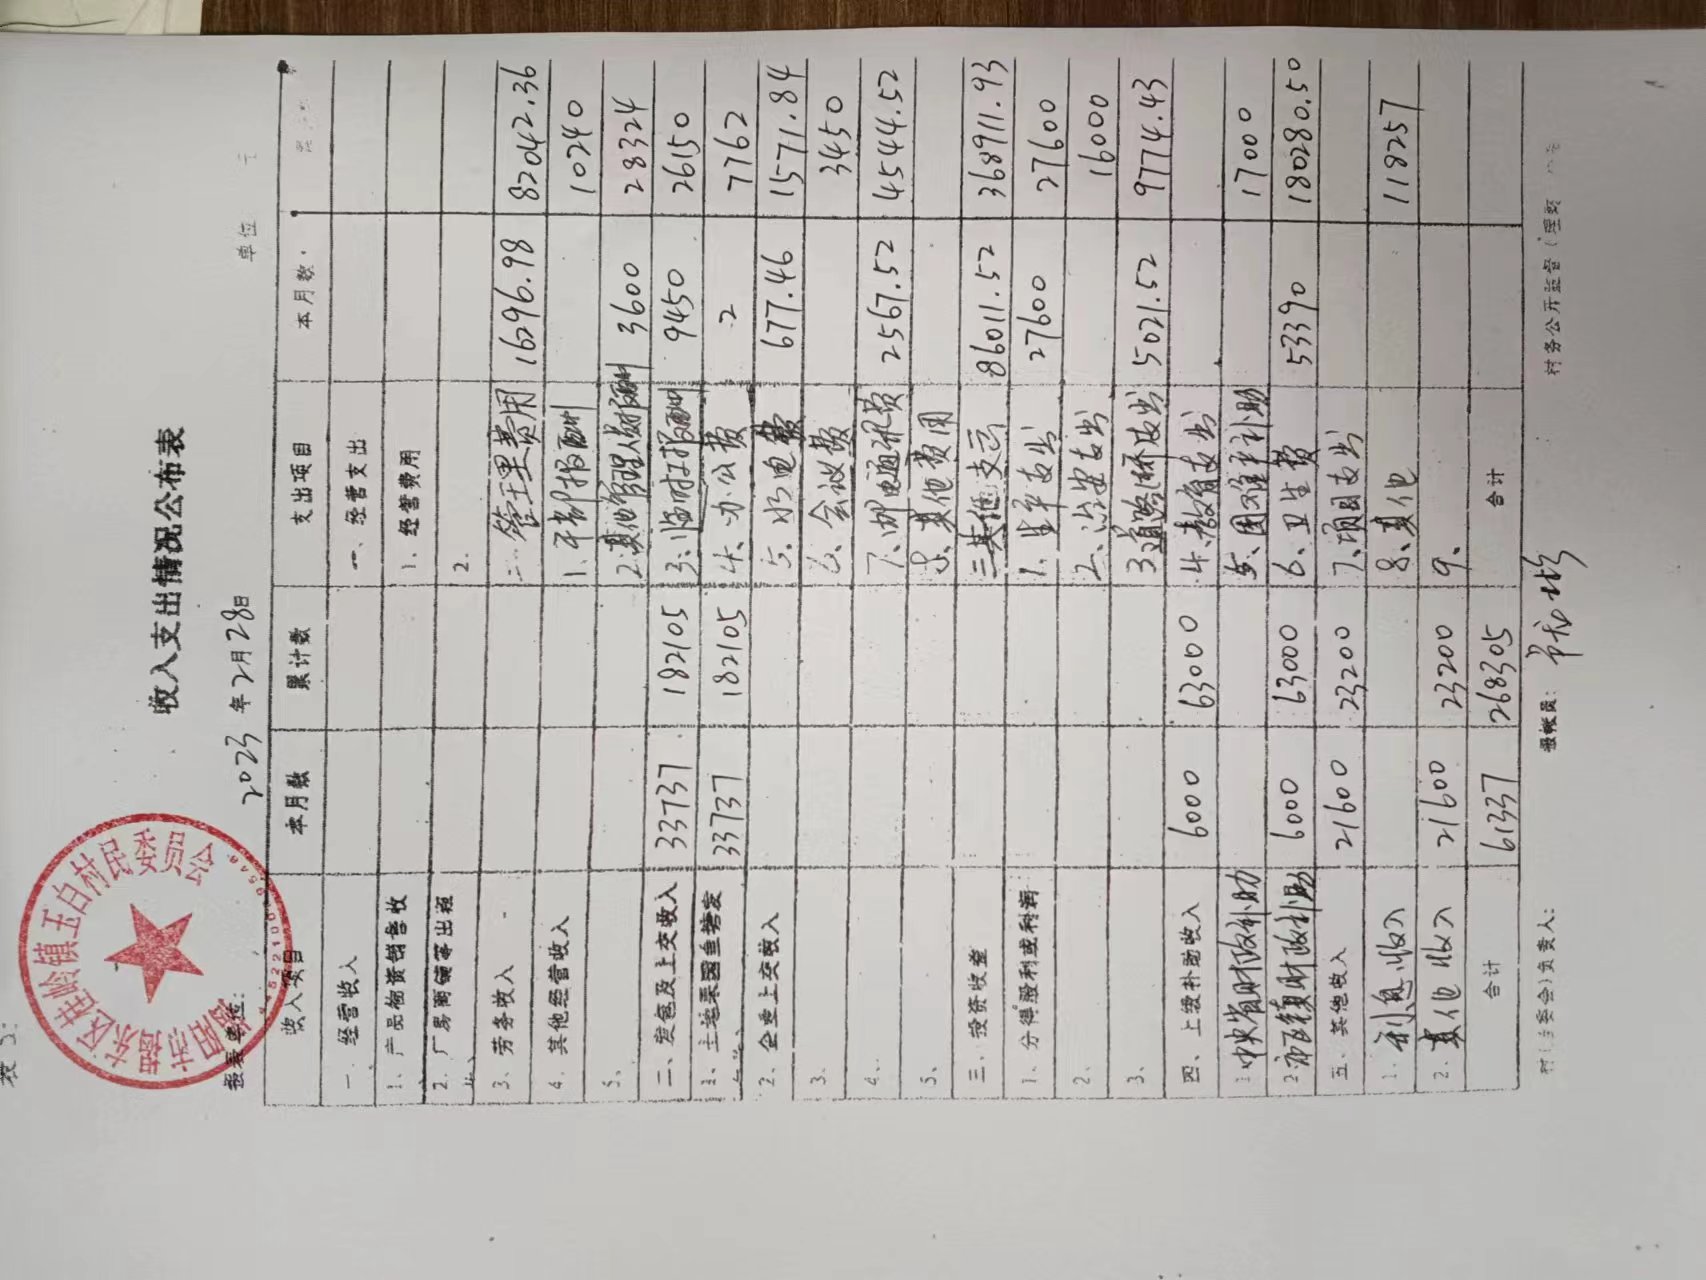 表3:
收入支出情况公布表
报表单位:
揭阳市蓝城区桂岭镇玉白村民委员会
2023年2月28日
单位 元
收入项目 本月数 累计数 支出项目 本月数
一、经营收入 一、经营支出
1、产品物资销售收 1、经营费用
2、厂房商铺等出租 2.
3、劳务收入 二、管理费用 16296.98 82042.36
4、其他经营收入 1、干部报酬 10240
5、 2.其他管理人员报酬 3600 28324
二、发包及上交收入 33737 182105 3、临时工报酬 9450 26150
1、土地果园鱼塘发 33737 182105 4、办公费 2 7762
2、企业上交收入 5、水电费 677.46 1571.84
3、 6、会议费 3450
4、 7、邮电通讯费 2567.52 4544.52
5、 8、其他费用
三、投资收益 三其他支出 86011.52 368911.93
1、分得股利或利润 1、生产支出 27600 27600
2、 2、治安支出 16000
3、 3.道路桥支出 5021.52 9774.43
四、上级补助收入 6000 63000 4、教育支出
1中央省财政补助 5、困难补助 1700
2市区镇财政补助 6000 63000 6、卫生费 53390 180280.50
五、其他收入 21600 23200 7、项目支出
1.利息收入 8、其他 118257
2.其他收入 21600 23200 9、
合计 61337 268305 合计
村(居委会)负责人: 报账员: 村务公开监督(理财